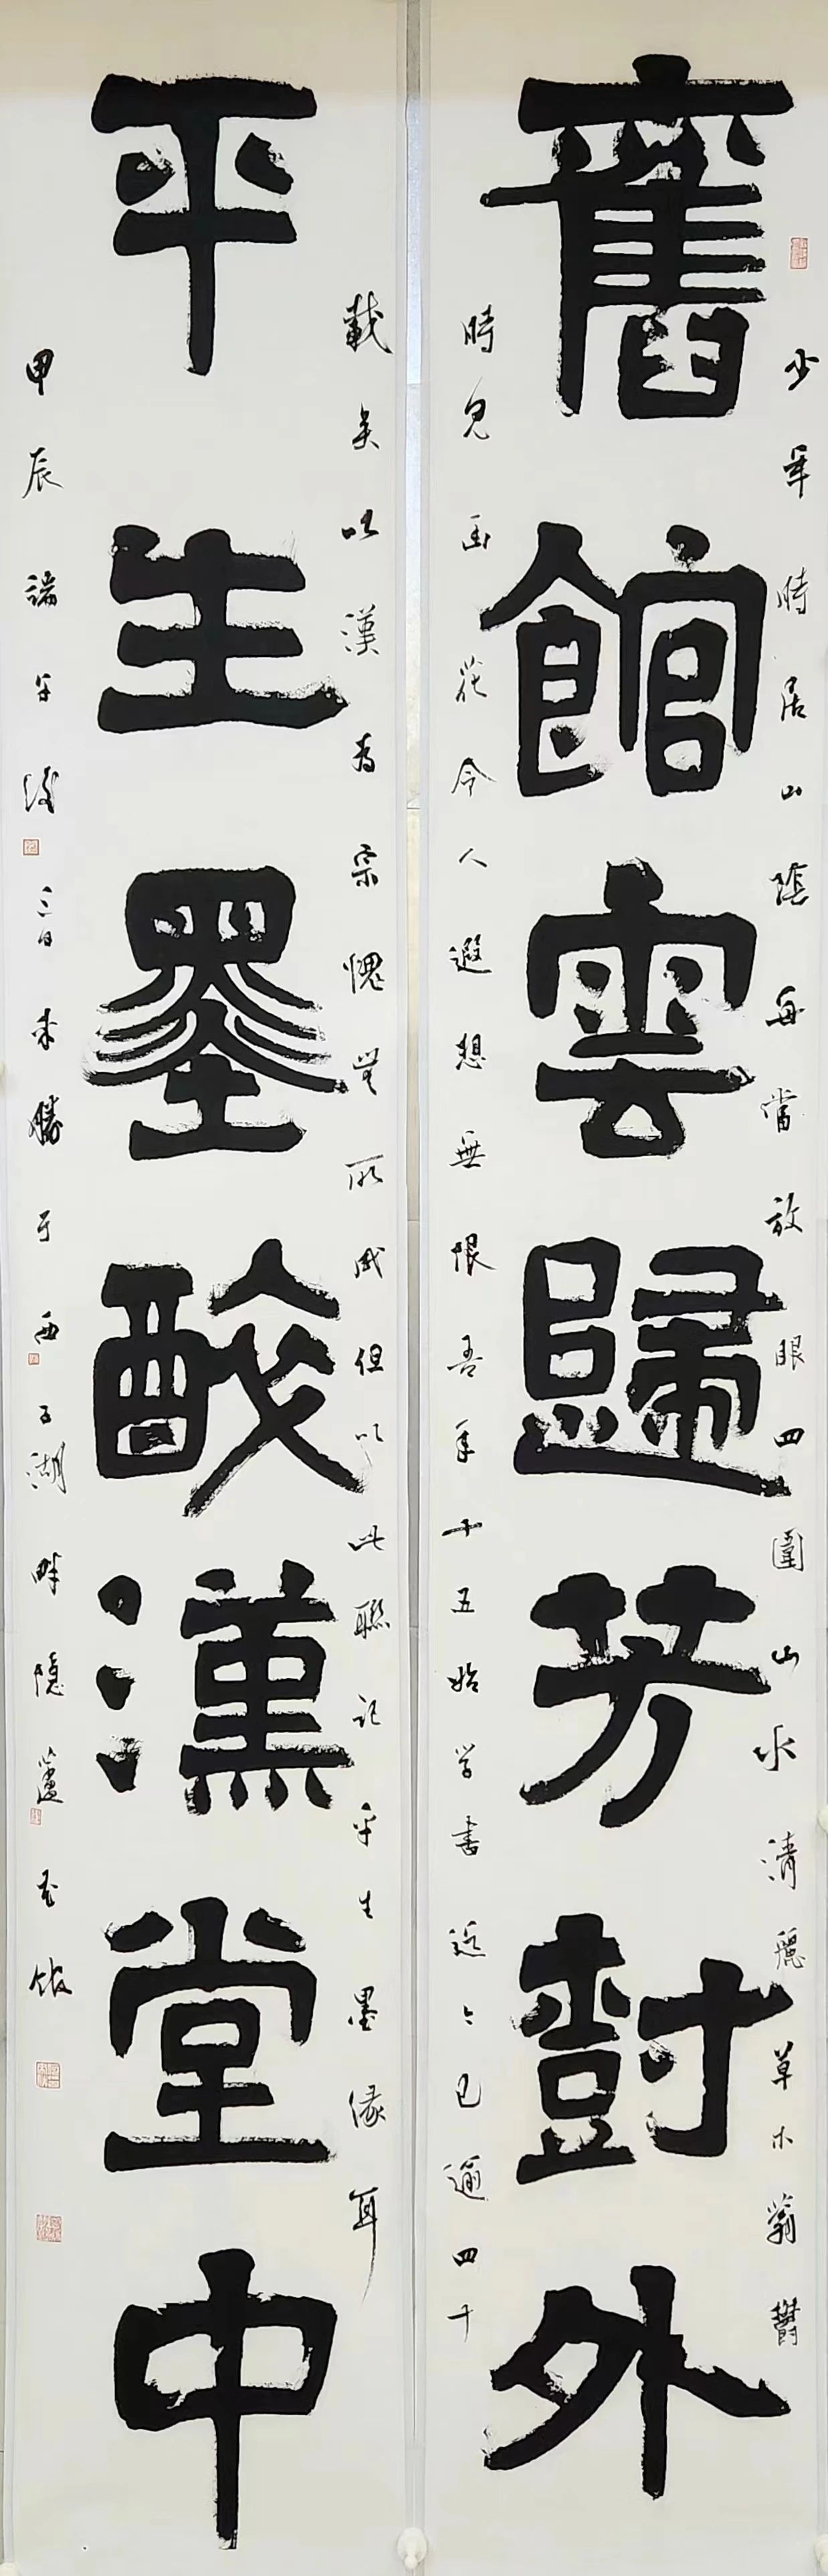 少年時居山陰每當放眼四圍山水清麗草木蓊鬱
舊館雲歸芳樹外
時見幽花令人遐想無限吾年十五始学書迄今已逾四十
載矣以漢為宗愧無所成但以此聯記平生墨緣耳
平生墨醉漢堂中
甲辰端午後三日來勝于西子湖畔隱廬